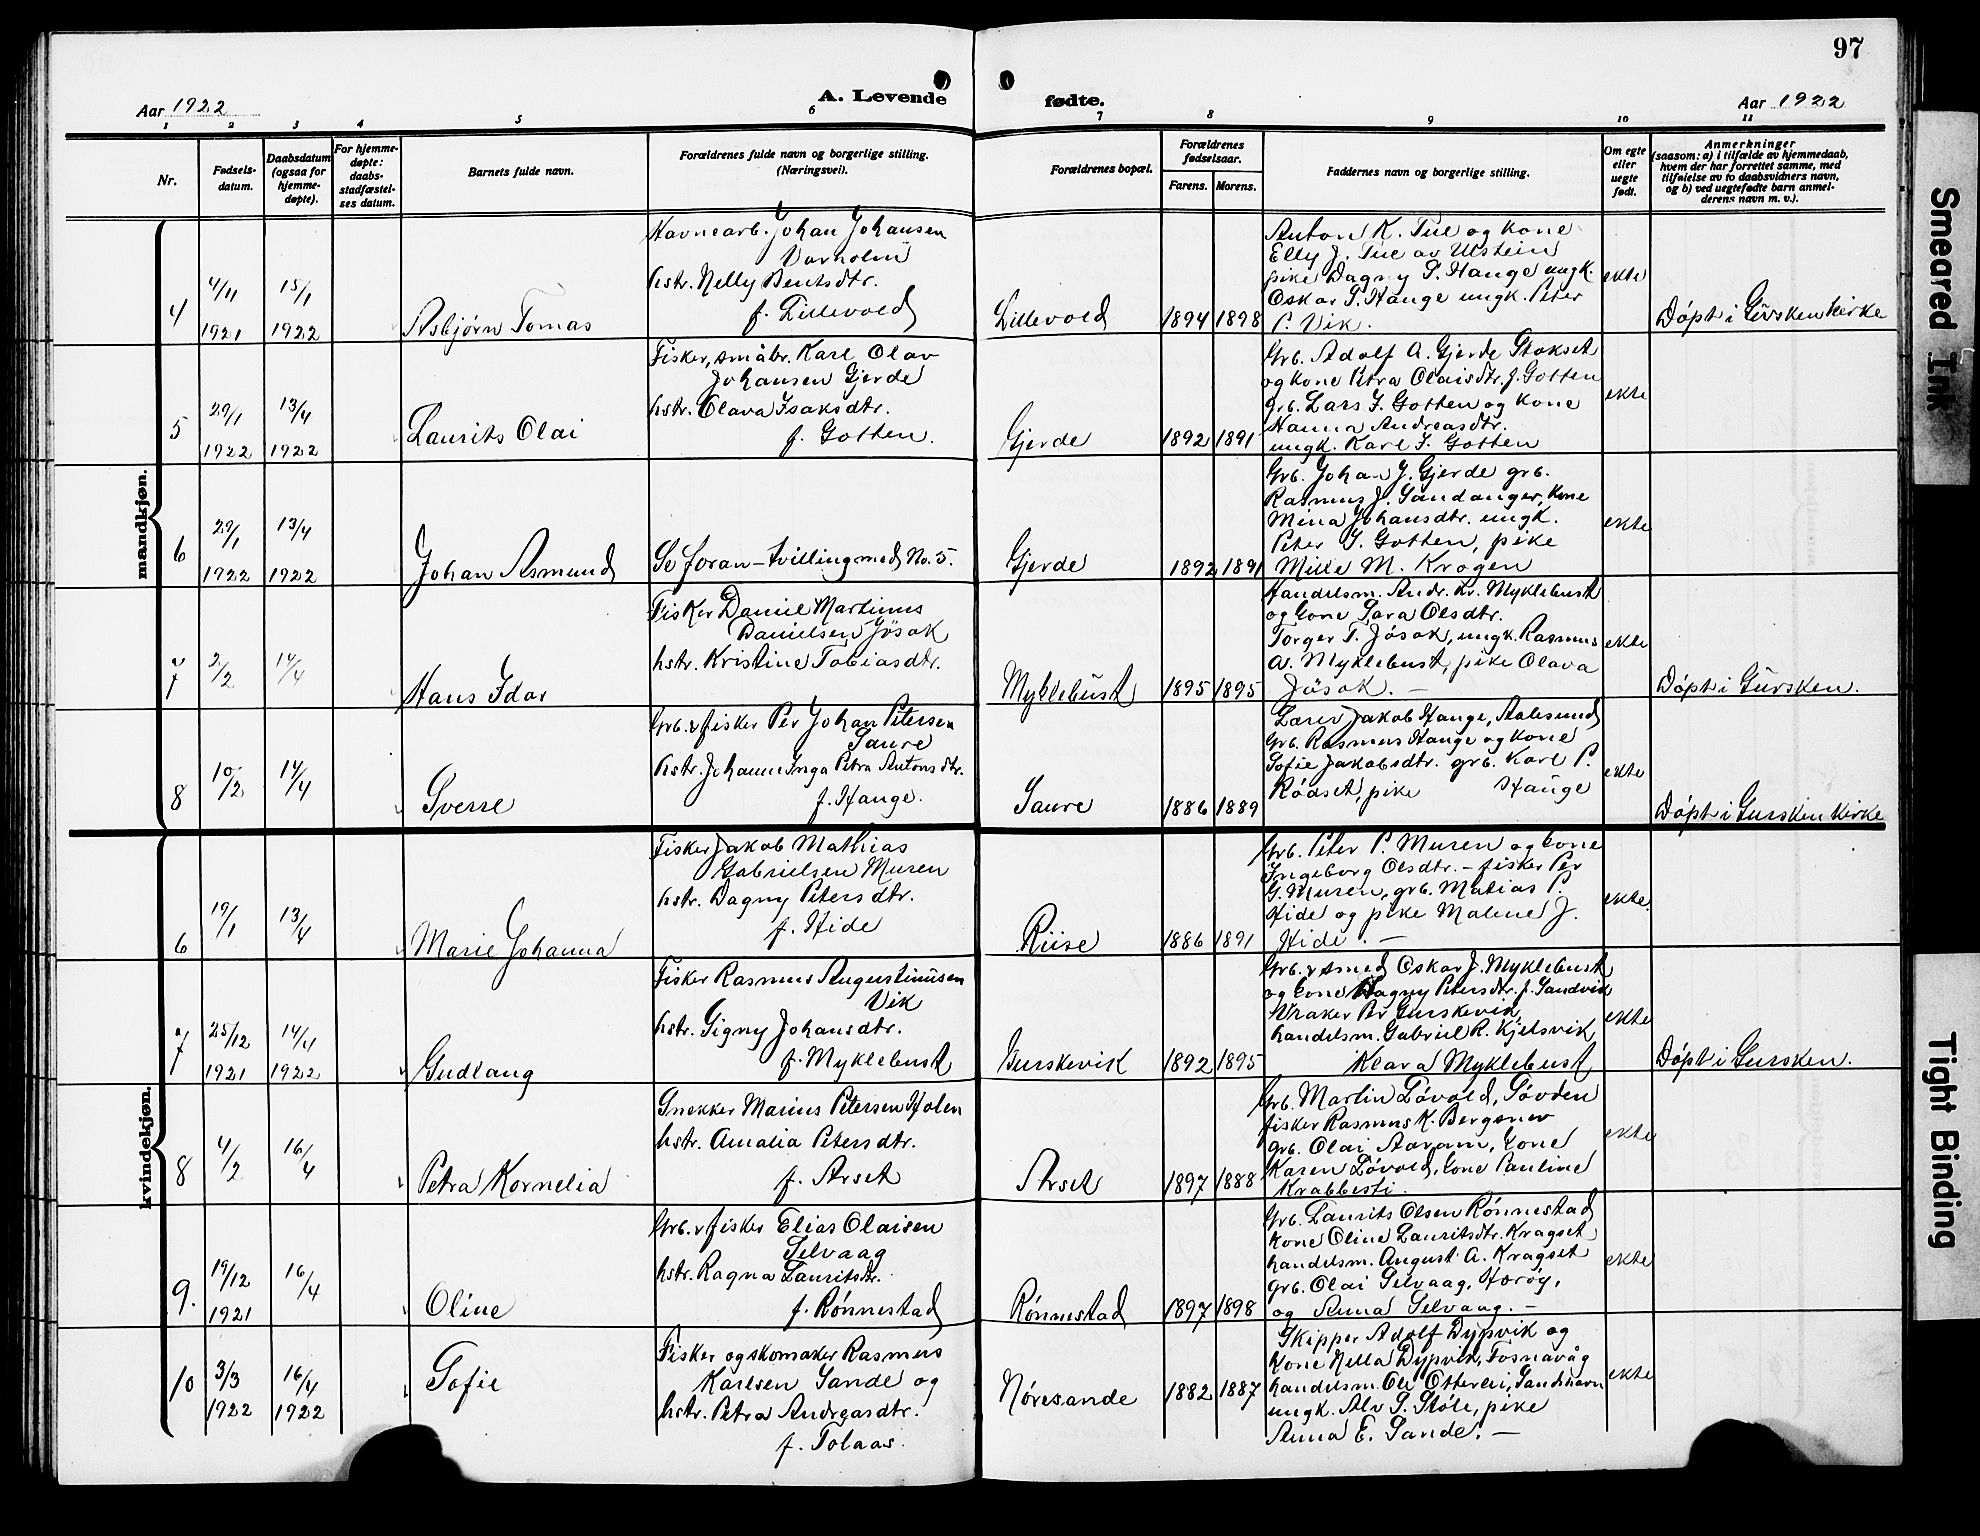 97
Aar 1922
A. Levende
fødte.
Aar 1922
1 2 3 4 5 6 7 8 9 10 11
Nr.
Fødsels-
datum.
Daabsdatum
(ogsaa for
hjemme-
døpte).
For hjemme-
døpte:
daabs-
stadfæstel-
ses datum.
Barnets fulde navn.
Forældrenes fulde navn og borgerlige stilling.
(Næringsvei).
Forældrenes bopæl.
Forældrenes
fødselsaar.
Farens. Morens.
Faddernes navn og borgerlige stilling.
Om egte
eller
uegte
født.
Anmerkninger
(saasom: a) i tilfælde av hjemmedaab,
hvem der har forrettet samme, med
tilføielse av to daabsvidners navn,
og b) ved uegtefødte barn anmel-
derens navn m. v.).
mandkjøn.
4
4/11
1921
15/1
1922
Asbjørn Tomas
Havnearb. Johan Johansen
Varholm
hstr. Nelly Bentsdtr.
f. Lillevold
Lillevold
1894 1898
Anton K. Tue og kone
Elly J. Tue av Ulstein
pike Dagny P. Hauge ungk.
Oskar P. Hauge ungk. Peter
P. Vik.
ekte
Døpt i Gursken kirke
5
29/1
1922
13/4
1922
Laurits Olai
Fisker, småbr. Karl Olav
Johansen Gjerde
hstr. Olava Isaksdtr.
f. Gotten.
Gjerde
1892 1891
Grb. Adolf A. Gjerde Stokset
og kone Petra Olaisdtr. f. Gotten
grb. Lars I. Gotten og kone
Hanna Andreasdtr.
ungk. Karl I. Gotten
ekte
6
29/1
1922
13/4
1922
Johan Asmund
Se foran - tvilling med No. 5.
Gjerde
1892 1891
Grb. Johan J. Gjerde grb.
Rasmus J. Sandanger, kone
Mina Johansdtr. ungk.
Peter I. Gotten, pike
Mille M. Krogen
ekte
7
2/2
14/4
Hans Idar
Fisker Daniel Martinus
Danielsen Jøsok
hstr. Kristine Tobiasdtr.
Myklebust
1895 1895
Handelsm. Andr. Kr. Myklebust
og kone Sara Olsdtr.
Torger T. Jøsok, ungk. Rasmus
A. Myklebust, pike Olava
Jøsok. -
ekte
Døpt i Gursken.
8
10/2
14/4
Sverre
Grb. & fisker Per Johan Petersen
Saure
hstr. Johanne Inga Petra Antonsdtr.
f. Hauge.
Saure
1886 1889
Lærer Jakob Hauge, Aalesund
Grb. Rasmus Hauge og kone
Sofie Jakobsdtr. grb. Karl P.
Rødset, pike Hauge
ekte
Døpt i Gursken kirke
kvindekjøn.
6
19/1
13/4
Marie Johanna
Fisker Jakob Mathias
Gabrielsen Muren
hstr. Dagny Petersdtr.
f. Hide
Riise
1886 1891
Grb. Peter P. Muren og kone
Ingeborg Olsdtr. - fisker Per
G. Muren, grb. Matias P.
Hide og pike Malene J.
Hide. -
ekte.
7
25/12
1921
14/4
1922
Gudlaug
Fisker Rasmus Augustinusen
Vik
hstr. Signy Johansdtr.
f. Myklebust
Gurskevik
1892 1895
Grb. & smed Oskar J. Myklebust
og kone Dagny Petersdtr. f. Sandvik
Vraker Per Gurskevik,
handelsm. Gabriel R. Kjelsvik
Klara Myklebust
ekte
Døpt i Gursken.
8
4/2
16/4
Petra Kornelia
Snekker Marius Petersen Holen
hstr. Amalia Petersdtr.
f. Årset
Årset
1897 1888
Grb. Martin Løvold, Søvden
fisker Rasmus K. Bergsnev
grb. Olai Aaram, kone
Karen Løvold, kone Pauline
Krabbesti.
ekte
9.
19/12
1921
16/4
Oline
Grb. & fisker Elias Olaisen
Selvaag
hstr. Ragna Lauritsdtr.
f. Rønnestad
Rønnestad
1897 1898
Grb. Laurits Olsen Rønnestad
kone Oline Lauritsdtr. Kragset
handelsm. August A. Kragset
grb. Olai Selvaag, Herøy,
og Anna Selvaag. -
ekte
10
3/3
1922
16/4
1922
Sofie
Fisker og skomaker Rasmus
Karlsen Sande og
hstr. Petra Andreasdtr.
f. Tolaas.
Nøresande
1882 1887
Skipper Adolf Dypvik og
kone Nella Dypvik, Fosnavåg
handelsm. Ole Otterlei, Sandshavn
ungk. Alv S. Støle, pike
Anna E. Sande. -
ekte
Smeared Ink
Tight Binding